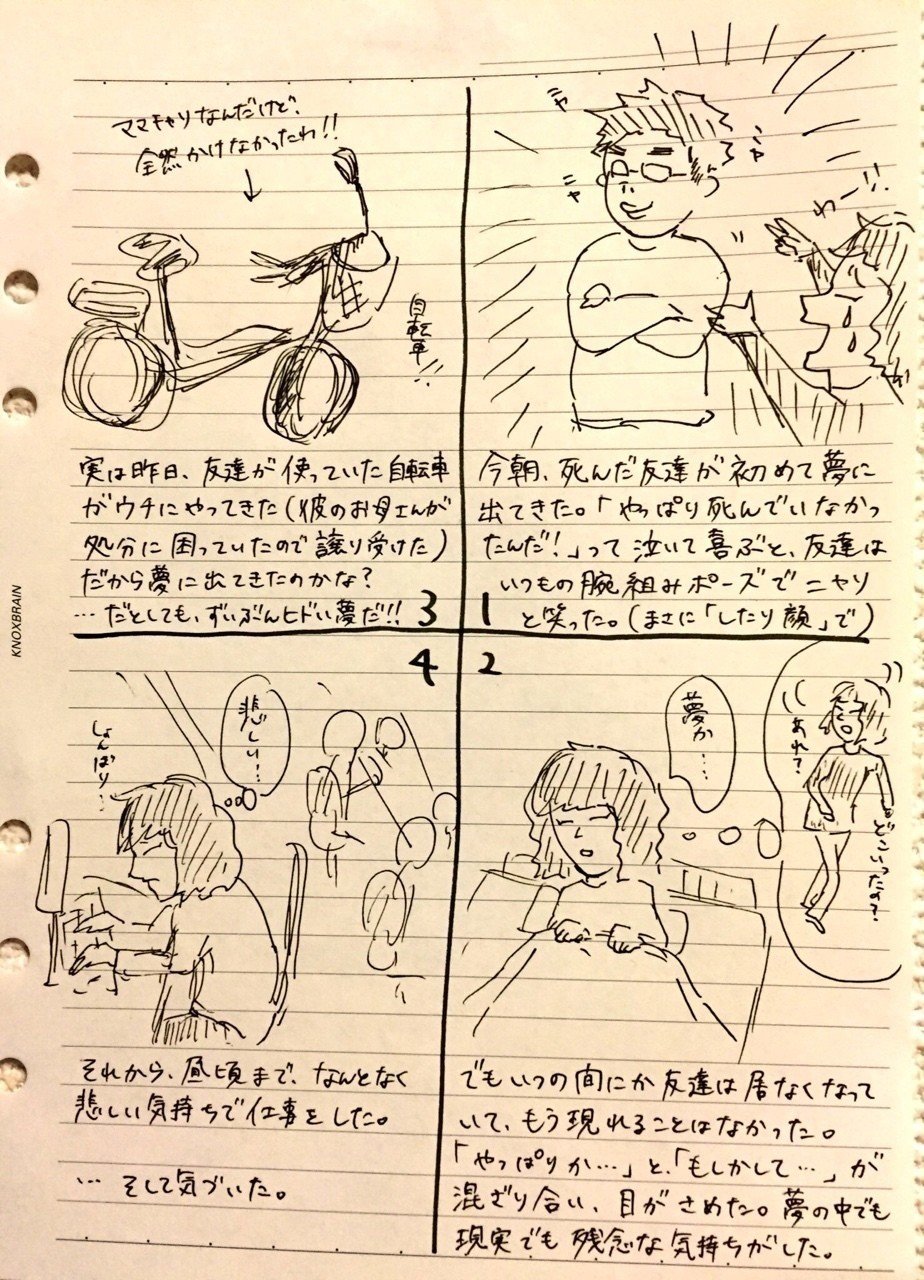 1
ニヤ
ニヤ
ニヤ
わー!!
今朝、死んだ友達が初めて夢に
出てきた。「やっぱり死んでいなかっ
たんだ!」って泣いて喜ぶと、友達は
いつもの腕組みポーズでニヤリ
と笑った。(まさに「したり顔」で)
2
夢か…
あれ?
どこいったの?
でもいつの間にか友達は居なくなって
いて、もう現れることはなかった。
「やっぱりか…」と、「もしかして…」が
混ざり合い、目がさめた。夢の中でも
現実でも残念な気持ちがした。
3
ママチャリなんだけど、
全然かけなかったわ!!
自転車!!
実は昨日、友達が使っていた自転車
がウチにやってきた(彼のお母さんが
処分に困っていたので譲り受けた)
だから夢に出てきたのかな?
…だとしても、ずいぶんヒドい夢だ!!
4
悲しい…
しょんぼり…
それから、昼頃まで、なんとなく
悲しい気持ちで仕事をした。
…そして気づいた。
KNOXBRAIN